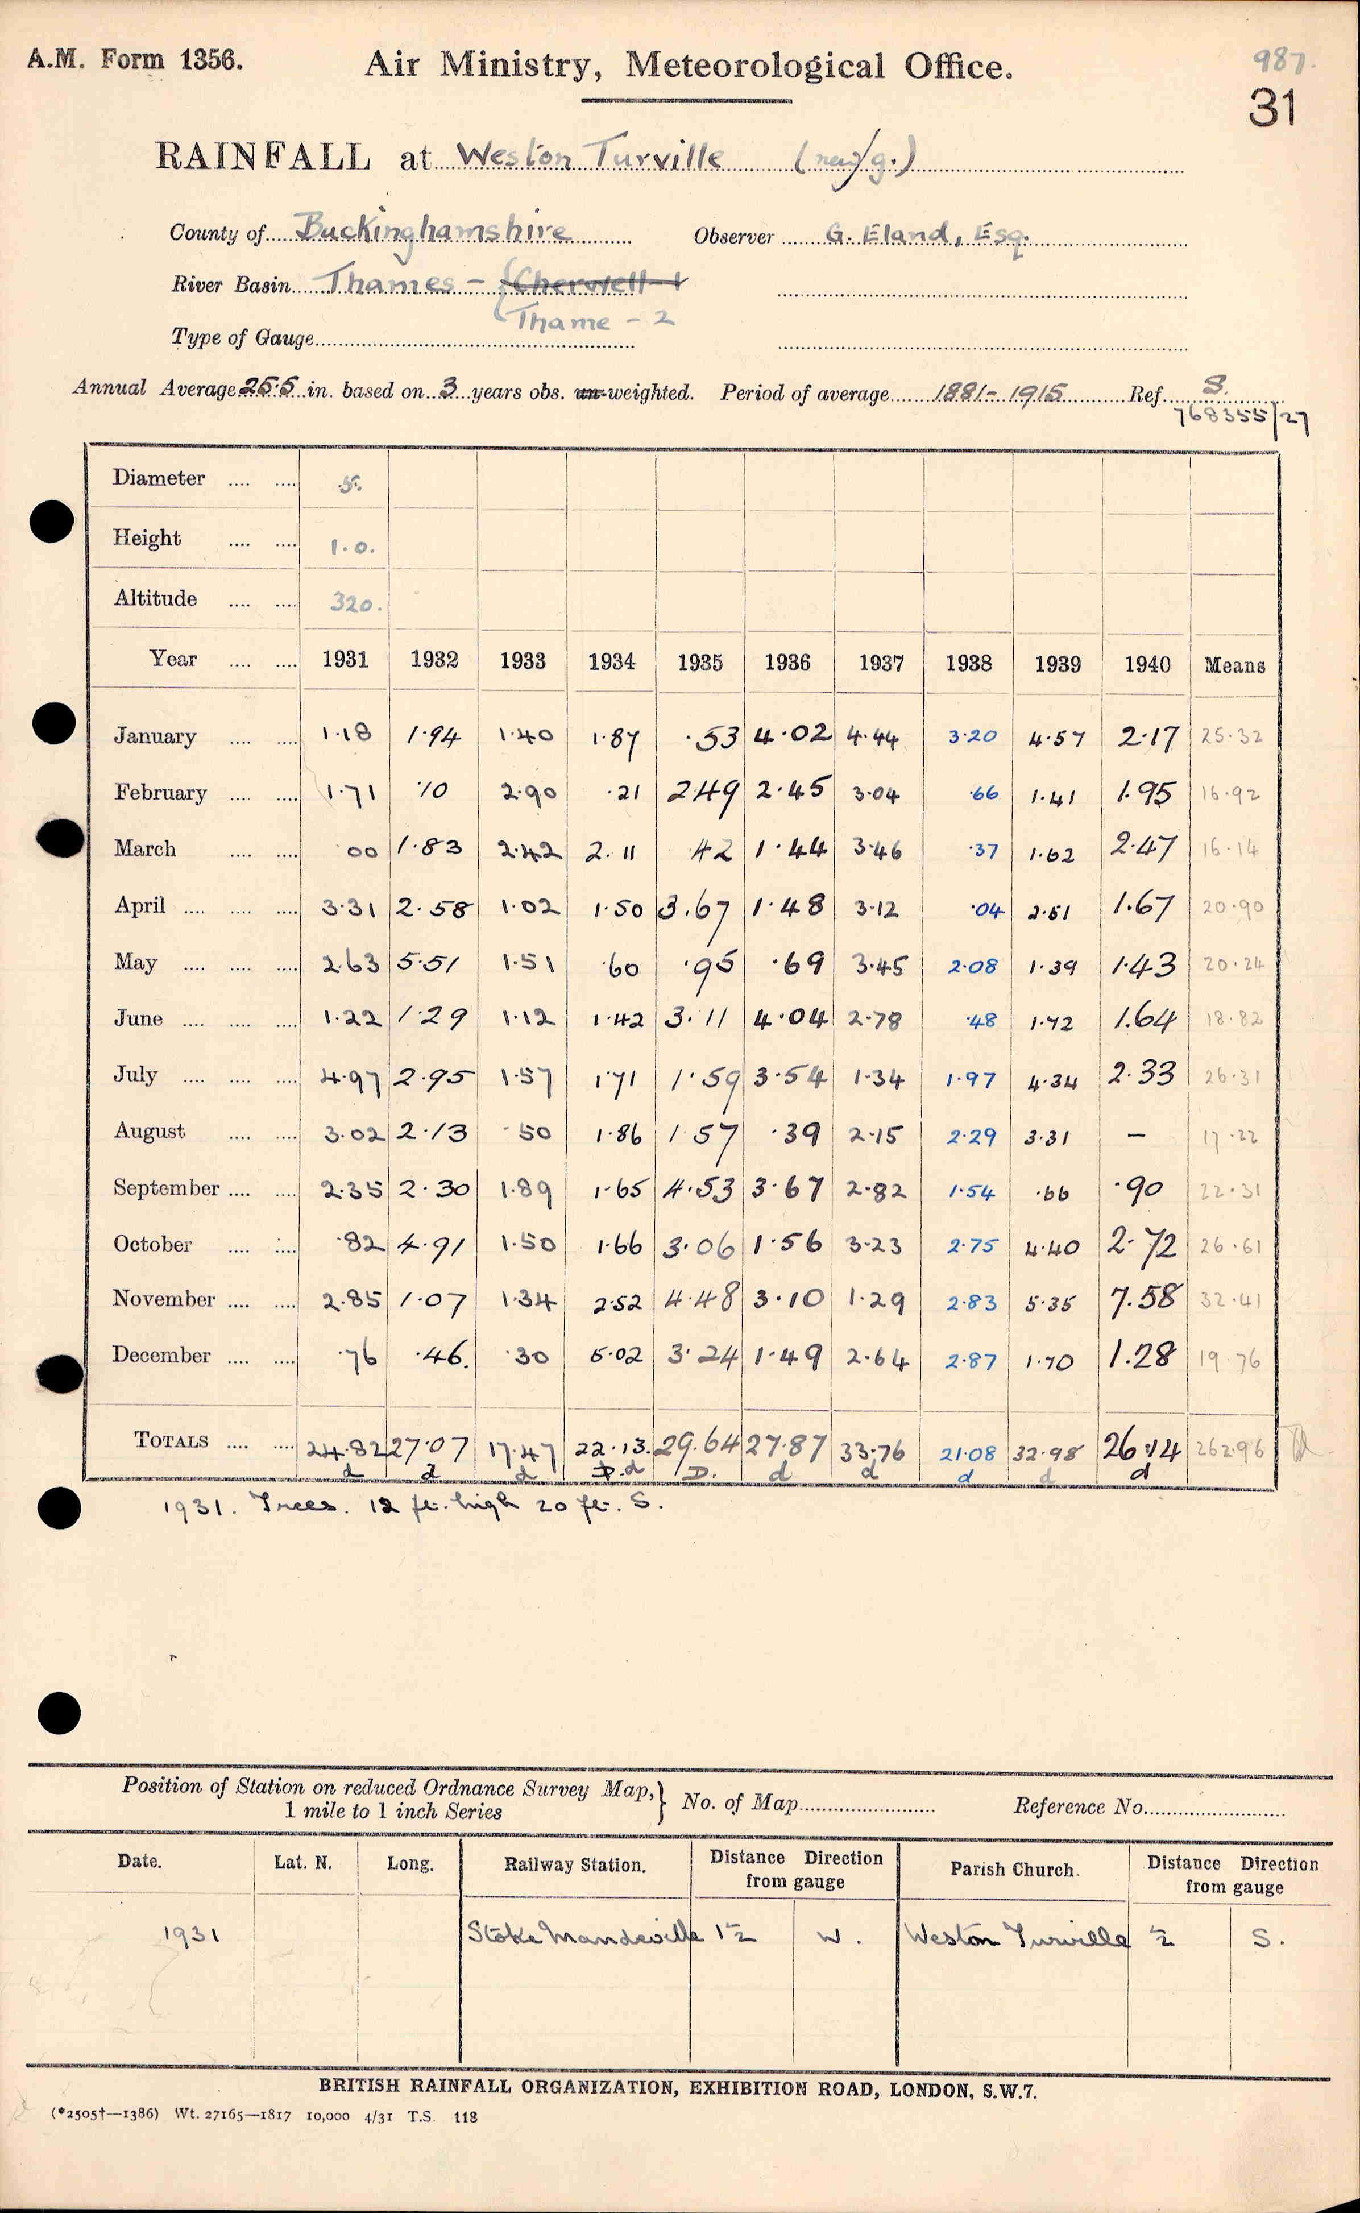 A.M. Form 1356.
Air Ministry, Meteorological Office.
987.
31
RAINFALL at Weston Turville (new g.)
County of Buckinghamshire Observer G. Eland, Esq.
River Basin Thames - {Cherwell-1
Thame - 2
Type of Gauge
Annual Average 25.5 in. based on 3 years obs. un-weighted. Period of average 1881-1915 Ref. S.
768355/27
Diameter .... .... 5.
Height .... .... 1.0.
Altitude .... .... 320.
Year .... .... 1931 1932 1933 1934 1935 1936 1937 1938 1939 1940 Means
January .... .... 1.18 1.94 1.40 1.87 .53 4.02 4.44 3.20 4.57 2.17 25.32
February .... .... 1.71 .10 2.90 .21 2.49 2.45 3.04 .66 1.41 1.95 16.92
March .... .... 00 1.83 2.42 2.11 42 1.44 3.46 .37 1.62 2.47 16.14
April .... .... .... 3.31 2.58 1.02 1.50 3.67 1.48 3.12 .04 2.51 1.67 20.90
May .... .... .... 2.63 5.51 1.51 .60 .95 .69 3.45 2.08 1.39 1.43 20.24
June .... .... .... 1.22 1.29 1.12 1.42 3.11 4.04 2.78 .48 1.72 1.64 18.82
July .... .... .... 4.97 2.95 1.57 1.71 1.59 3.54 1.34 1.97 4.34 2.33 26.31
August .... .... 3.02 2.13 .50 1.86 1.57 .39 2.15 2.29 3.31 — 17.22
September .... .... 2.35 2.30 1.89 1.65 4.53 3.67 2.82 1.54 .66 .90 22.31
October .... .... .82 4.91 1.50 1.66 3.06 1.56 3.23 2.75 4.40 2.72 26.61
November .... .... 2.85 1.07 1.34 2.52 4.48 3.10 1.29 2.83 5.35 7.58 32.41
December .... .... .76 .46. .30 5.02 3.24 1.49 2.64 2.87 1.70 1.28 19.76
TOTALS .... .... 24.82 27.07 17.47 22.13. 29.64 27.87 33.76 21.08 32.98 26.14 262.96
d d d D.d D. d d d d d
1931. Trees. 12 ft. high 20 ft. S.
Position of Station on reduced Ordnance Survey Map,} No. of Map Reference No.
1 mile to 1 inch Series
Date. Lat. N. Long. Railway Station. Distance Direction from gauge Parish Church. Distance Direction from gauge
1931 Stoke Mandeville 1½ W. Weston Turville ½ S.
BRITISH RAINFALL ORGANIZATION, EXHIBITION ROAD, LONDON, S.W.7.
(*2505†—1386) Wt. 27165—1817 10,000 4/31 T.S. 118